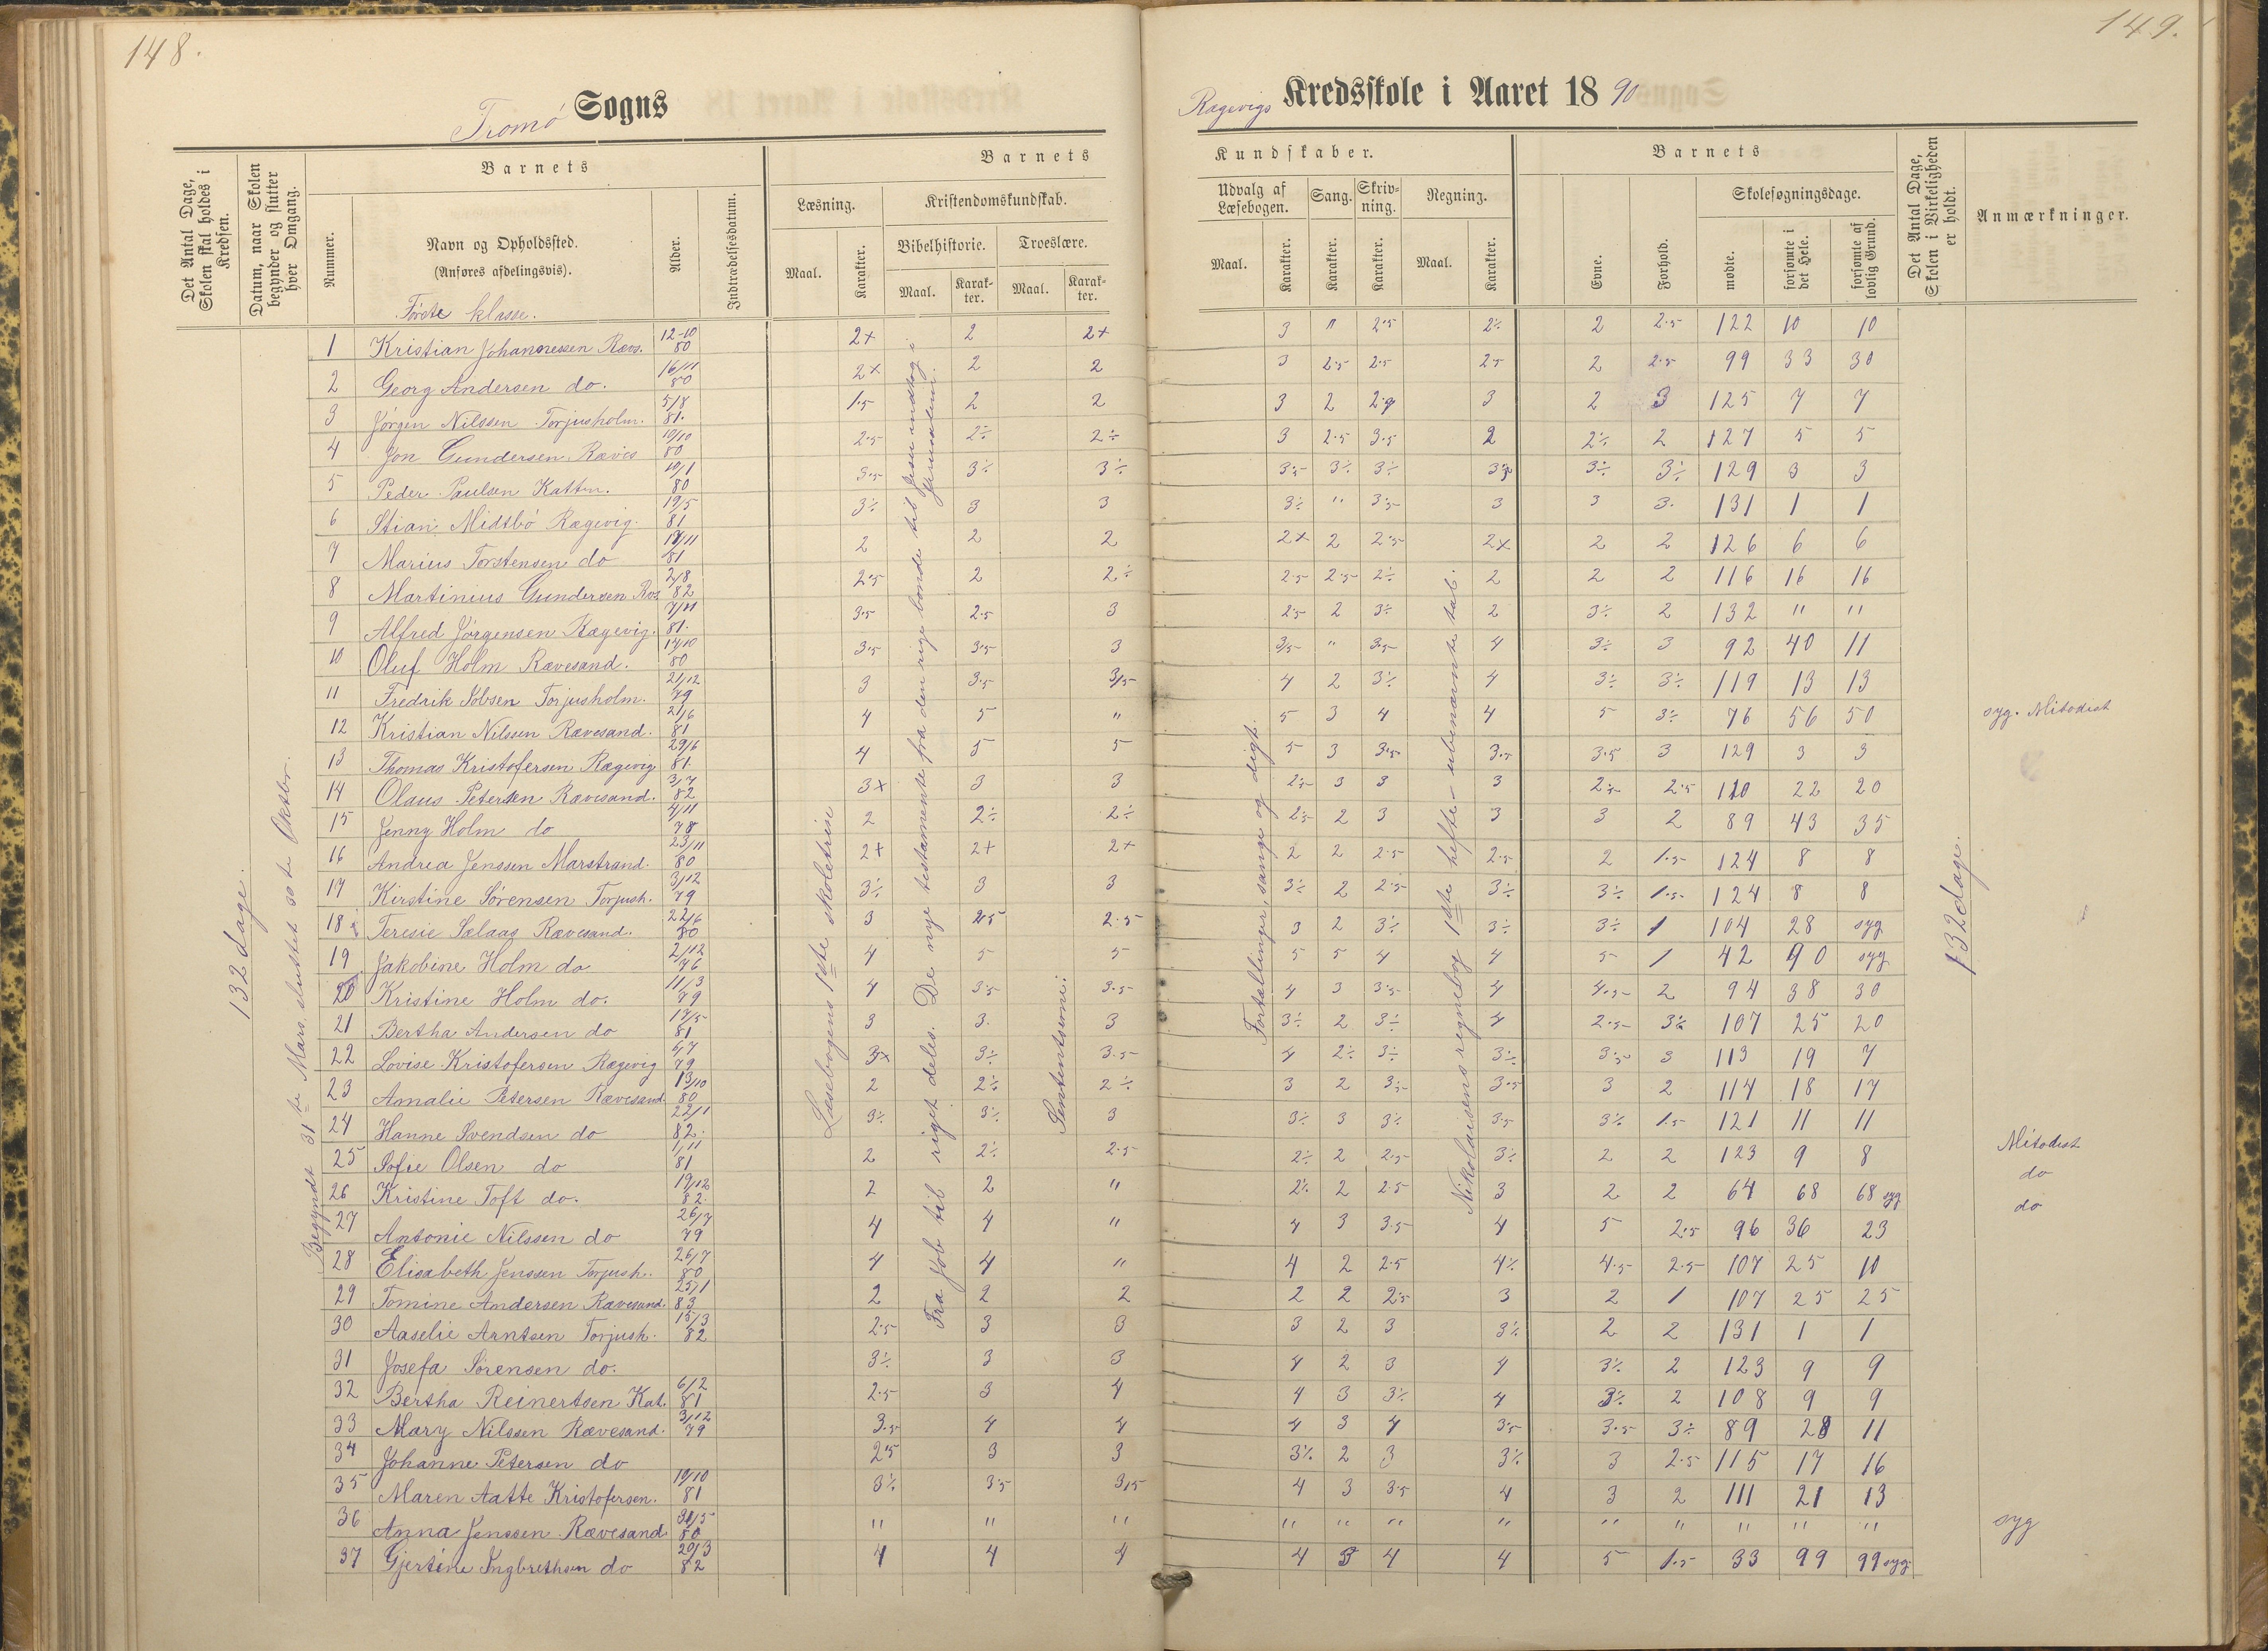 148.
149.
Tromö Sogns
Rægevigs Kredsskole i Aaret 1890
Det Antal Dage, Skolen skal holdes i Kredsen.
Datum, naar Skolen begynder og slutter hver Omgang.
Barnets
Nummer.
Navn og Opholdssted.
(Anføres afdelingsvis).
Alder.
Indtrædelsesdatum.
Barnets
Læsning.
Kristendomskundskab.
Maal.
Karakter.
Bibelhistorie.
Troeslære.
Maal.
Karakter.
Maal.
Karakter.
Kundskaber.
Udvalg af Læsebogen.
Sang.
Skrivning.
Regning.
Maal.
Karakter.
Karakter.
Karakter.
Maal.
Karakter.
Barnets
Evne.
Forhold.
Skolesøgningsdage.
mødte.
forsømte i det Hele.
forsømte af lovlig Grund.
Det Antal Dage, Skolen i Virkeligheden er holdt.
Anmærkninger.
Förste klasse.
132 dage.
Begyndt 31te Mars, sluttet 30te Oktbr.
Læsebogens 1ste skoletrin
Fra Job til riget deles. De nye testamente fra den rige bonde til Jesu indtog i Jerusalem.
Sententserne.
Fortællinger, sange og digt.
Nikolaisens regnebog 1ste hefte - ubenævnte tal.
132 dage.
1 Kristian Johannessen Ræves. 12-10 80 2+ 2 2+ 3 " 2.5 2÷ 2 2.5 122 10 10
2 Georg Andersen do. 16/11 80 2+ 2 2 3 2.5 2.5 2.5 2 2.5 99 33 30
3 Jörgen Nilssen Torjusholm. 5/8 81. 1.5 2 2 3 2 2.9 3 2 3 125 7 7
4 Jon Gundersen Ræves 10/10 80 2.5 2÷ 2÷ 3 2.5 3.5 2 2÷ 2 127 5 5
5 Peder Paulsen Katten. 10/1 80 3.5 3÷ 3÷ 3.5 3÷ 3÷ 3.5 3÷ 3÷ 129 3 3
6 Stian Midtbö Rægevig. 19/5 81 3÷ 3 3 3÷ " 3.5 3 3 3. 131 1 1
7 Marius Torstensen do 17/11 81 2 2 2 2+ 2 2.5 2+ 2 2 126 6 6
8 Martinius Gundersen Ræv. 2/8 82 2.5 2 2÷ 2.5 2.5 2÷ 2 2 2 116 16 16
9 Alfred Jörgensen Rægevig. 7/11 81. 3.5 2.5 3 2.5 2 3÷ 2 3÷ 2 132 " "
10 Oluf Holm Rævesand. 14/10 80 3.5 3.5 3 3.5 " 3.5 4 3÷ 3 92 40 11
11 Fredrik Jobsen Torjusholm. 21/12 79 3 3.5 3.5 4 2 3÷ 4 3÷ 3÷ 119 13 13
12 Kristian Nilssen Rævesand. 21/6 81 4 5 " 5 3 4 4 5 3÷ 76 56 50 syg. Mitodist
13 Thomas Kristofersen Rægevig 29/6 81. 4 5 5 5 3 3.5 3.5 3.5 3 129 3 3
14 Olaus Petersen Rævesand. 3/7 82 3+ 3 3 2.5 3 3 3 2.5 2.5 110 22 20
15 Jenny Holm do 4/11 78 2 2÷ 2÷ 2.5 2 3 3 3 2 89 43 35
16 Andrea Jenssen Marstrand. 23/11 80 2+ 2+ 2+ 2 2 2.5 2.5 2 1.5 124 8 8
17 Kirstine Sörensen Torjush. 3/12 79 3÷ 3 3 3÷ 2 2.5 3÷ 3÷ 1.5 124 8 8
18 Teresie Sælaag Rævesand. 22/6 80 3 2.5 2.5 3 2 3÷ 3÷ 3÷ 1 104 28 syg
19 Jakobine Holm do 2/12 76 4 5 5 5 5 4 4 5 1 42 90 syg
20 Kristine Holm do. 11/3 79 4 3.5 3.5 4 3 3.5 4 4.5 2 94 38 30
21 Bertha Andersen do 17/5 81 3 3. 3 3÷ 2 3÷ 4 2.5 3÷ 107 25 20
22 Lovise Kristofersen Rægevig 6/7 79 3+ 3÷ 3.5 4 2÷ 3÷ 3÷ 3.5 3 113 19 7
23 Amalie Petersen Rævesand. 13/10 80 2 2÷ 2÷ 3 2 3.5 3.5 3 2 114 18 17
24 Hanne Svendsen do 22/1 82. 3÷ 3÷ 3 3÷ 3 3÷ 3.5 3÷ 1.5 121 11 11
25 Sofie Olsen do 1/11 81 2 2÷ 2.5 2÷ 2 2.5 3÷ 2 2 123 9 8 Mitodist
26 Kristine Toft do. 19/12 82. 2 2 " 2÷ 2 2.5 3 2 2 64 68 68 syg do
27 Antonie Nilssen do 26/7 79 4 4 " 4 3 3.5 4 5 2.5 96 36 23 do
28 Elisabeth Jenssen Torjush. 26/7 80 4 4 " 4 2 2.5 4÷ 4.5 2.5 107 25 10
29 Tomine Andersen Rævesand. 25/1 83 2 2 2 2 2 2.5 3 2 1 107 25 25
30 Aaselie Arntsen Torjush. 15/3 82 2.5 3 3 3 2 3 3÷ 2 2 131 1 1
31 Josefa Sörensen do. 3÷ 3 3 4 2 3 4 3÷ 2 123 9 9
32 Bertha Reinertsen Kat. 6/2 81 2.5 3 4 4 3 3÷ 4 3÷ 2 108 9 9
33 Mary Nilssen Rævesand. 3/12 79 3.5 4 4 4 3 4 3.5 3.5 3÷ 89 28 11
34 Johanne Petersen do 2.5 3 3 3÷ 2 3 3÷ 3 2.5 115 17 16
35 Maren Aatte Kristofersen. 10/10 81 3÷ 3.5 3.5 4 3 3.5 4 3 2 111 21 13
36 Anna Jenssen Rævesand. 31/5 80 " " " " " " " " " " " " syg
37 Gjertine Ingbrethsen do 20/3 82 4 4 4 4 3 4 4 5 1.5 33 99 99 syg.